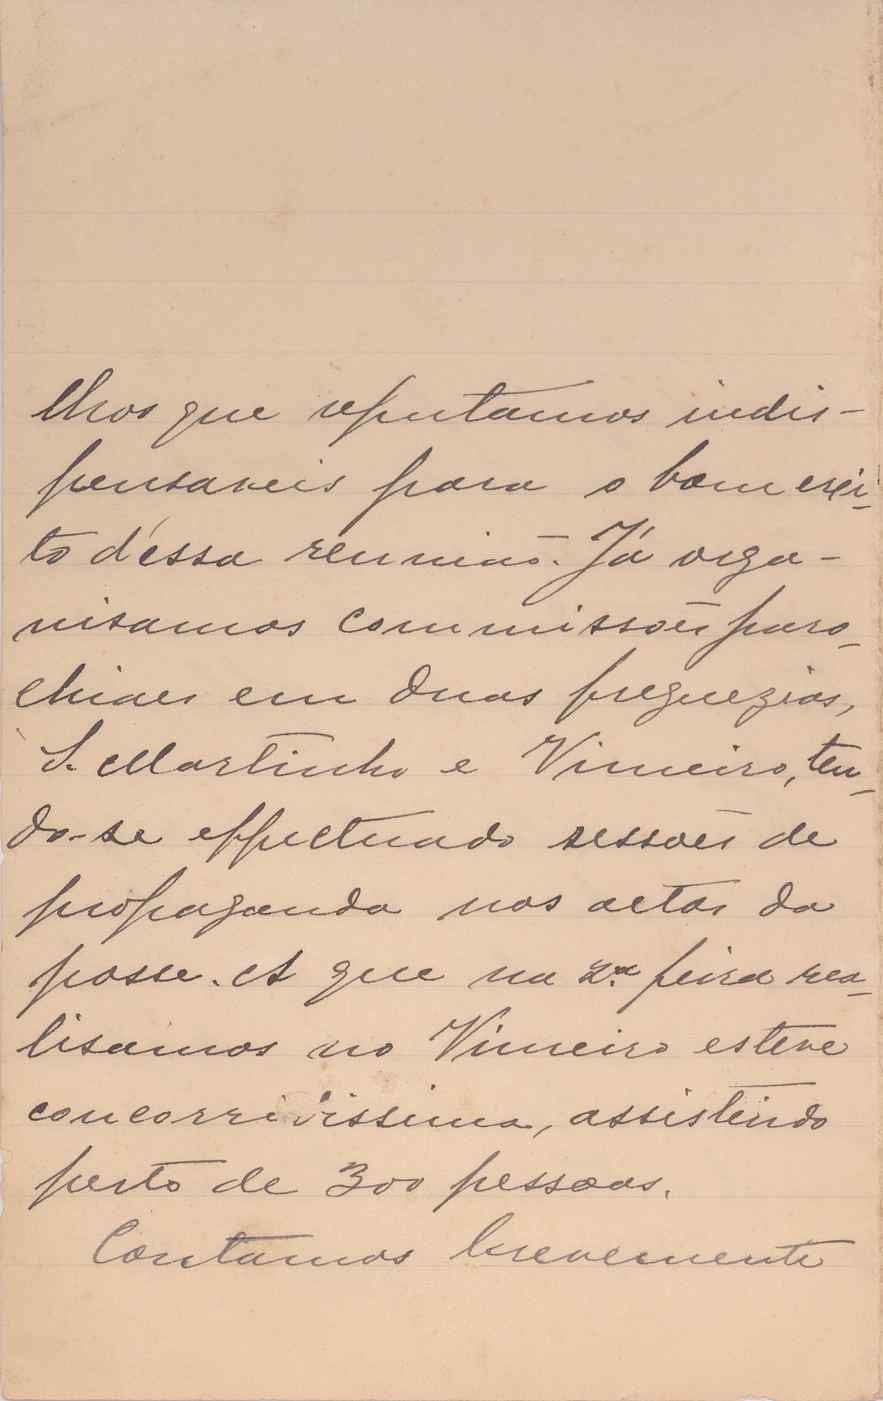 lhos que reputamos indis-
pensaveis para o bom exi-
to d'essa reunião. Já orga-
nisamos commissões paro-
chiaes em duas freguezias,
S. Martinho e Vimeiro, ten-
do-se effectuado sessões de
propaganda nos actos da
posse. A que na 2.ª feira rea-
lisamos no Vimeiro esteve
concorridissima, assistindo
perto de 300 pessoas.
Contamos brevemente